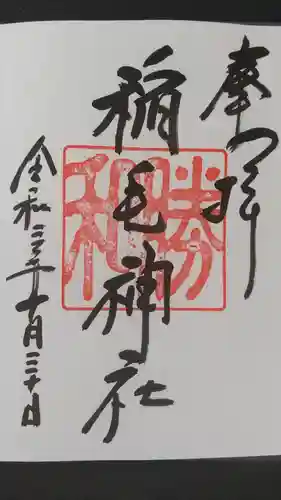 奉拝
稲毛神社
勝和
令和三年十月三十日